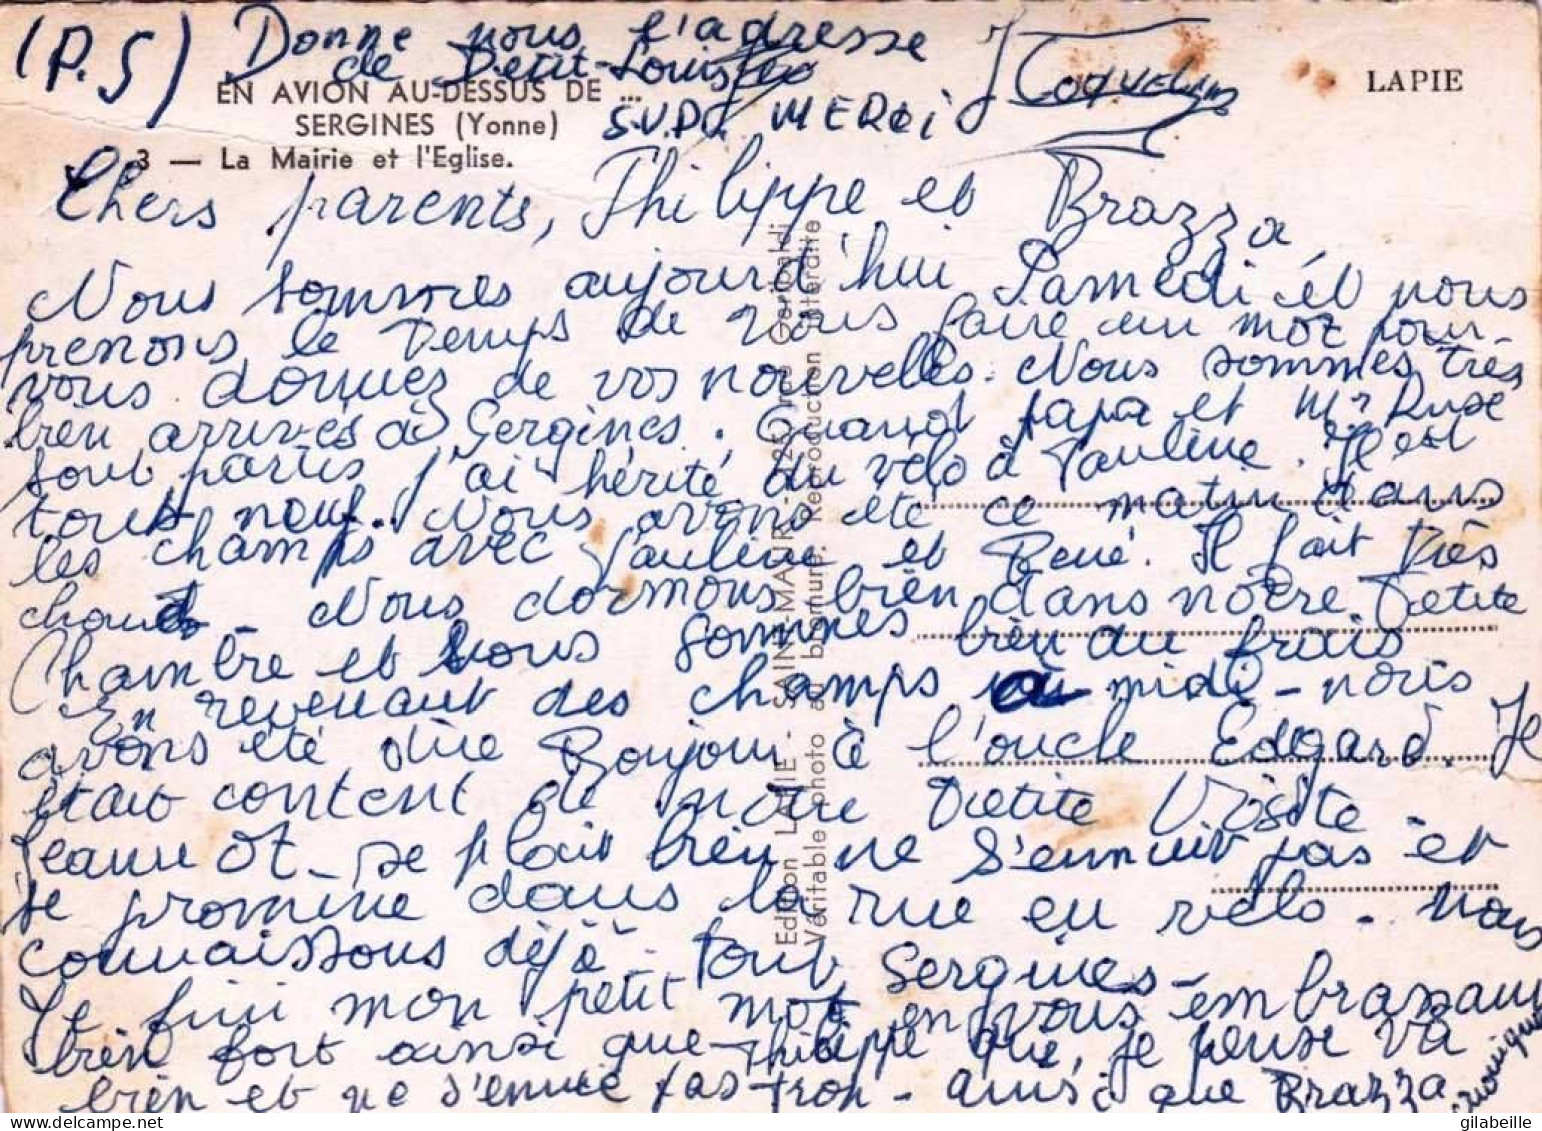 (P.S) Donne nous l'adresse
de Petit-Louis
S.V.P. MERCi
LAPIE
EN AVION AU-DESSUS DE ...
SERGINES (Yonne)
3 — La Mairie et l'Eglise.
Chers parents, Philippe et Brazza
Nous sommes aujourd'hui Samedi et nous
prenons le temps de vous faire un mot pour
vous donnez de nos nouvelles. Nous sommes très
bien arrivés à Sergines. Quand papa et Mr Ruse
sont partis j'ai hérité du vélo à Pauline. Il est
tout neuf. Nous avons été ce matin dans
les champs avec Pauline et René. Il fait très
chaud - Nous dormons bien dans notre Petite
Chambre et nous sommes bien au frais
En revenant des champs à midi - nous
avons été dire Bonjour à l'oncle Edgard. Il
était content de notre Petite Visite -
Jeannot se plait bien ne s'ennuit pas et
se promène dans la rue en vélo - Nous
connaissons déjà tout Sergines -
Je fini mon petit mot en vous embrassant
bien fort ainsi que Philippe que, je pense va
bien et ne s'ennuie pas trop - ainsi que Brazza
Monique
Edition LAPIE - SAINT-MAUR - 25, rue Garibaldi
Véritable photo au bromure, Reproduction interdite
gilabeille